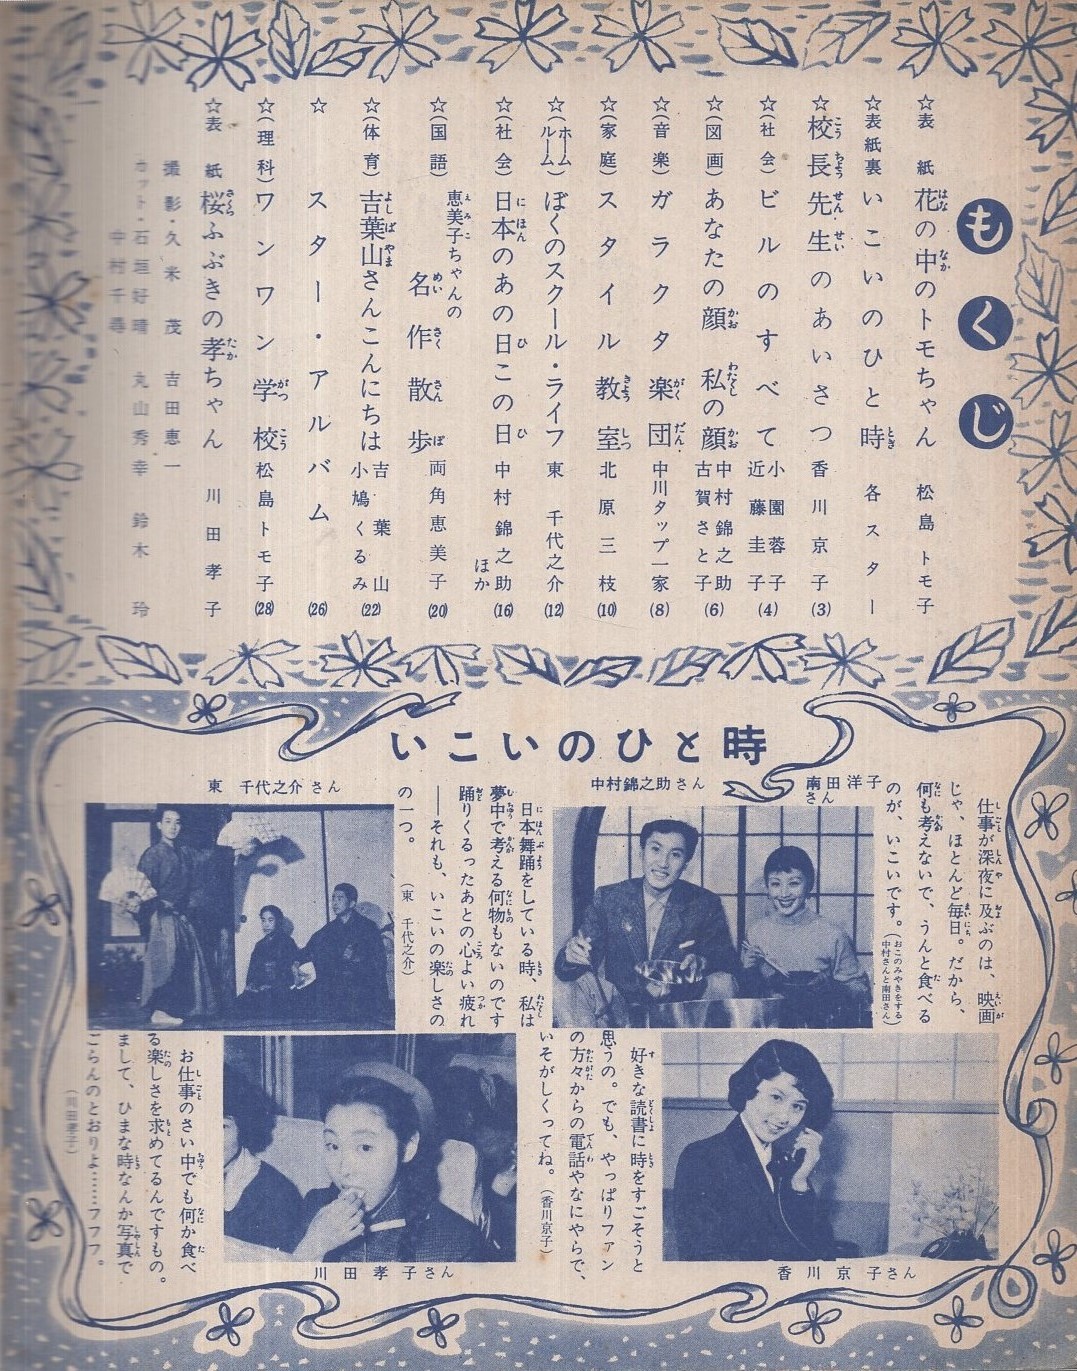 もくじ
☆表紙 花の中のトモちゃん 松島トモ子
☆表紙裏 いこいのひと時 各スター
☆校長先生のあいさつ 香川京子 (3)
☆(社会) ビルのすべて 小園蓉子 近藤圭子 (4)
☆(図画) あなたの顔 私の顔 中村錦之助 古賀さと子 (6)
☆(音楽) ガラクタ楽団 中川タップ一家 (8)
☆(家庭) スタイル教室 北原三枝 (10)
☆(ホームルーム) ぼくのスクール・ライフ 東千代之介 (12)
☆(社会) 日本のあの日この日 中村錦之助 ほか (16)
☆(国語) 恵美子ちゃんの 名作散歩 両角恵美子 (20)
☆(体育) 吉葉山さんこんにちは 吉葉山 小鳩くるみ (22)
☆ スター・アルバム (26)
☆(理科) ワンワン学校 松島トモ子 (28)
☆表紙 桜ふぶきの孝ちゃん 川田孝子
撮影・久米茂 吉田恵一
カット・石垣好晴 丸山秀幸 鈴木玲
中村千尋
いこいのひと時
南田洋子さん
中村錦之助さん
仕事が深夜に及ぶのは、映画
じゃ、ほとんど毎日。だから、
何も考えないで、うんと食べる
のが、いこいです。(おこのみやきをする中村さんと南田さん)
東 千代之介さん
日本舞踊をしている時、私は
夢中で考える何物もないのです
踊りくるったあとの心よい疲れ
――それも、いこいの楽しさの
の一つ。 (東 千代之介)
好きな読書に時をすごそうと
思うの。でも、やっぱりファン
の方々からの電話やなにやらで、
いそがしくってね。(香川京子)
香川京子さん
川田孝子さん
お仕事のさい中でも何か食べ
る楽しさを求めてるんですもの。
まして、ひまな時なんか写真で
ごらんのとおりよ……フフフ。
(川田孝子)